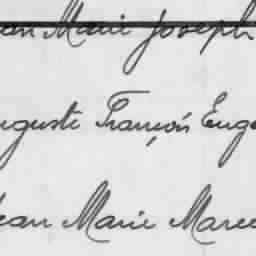 ean Marie Joseph
uguste Françóis Euge
Jean Marie Marce